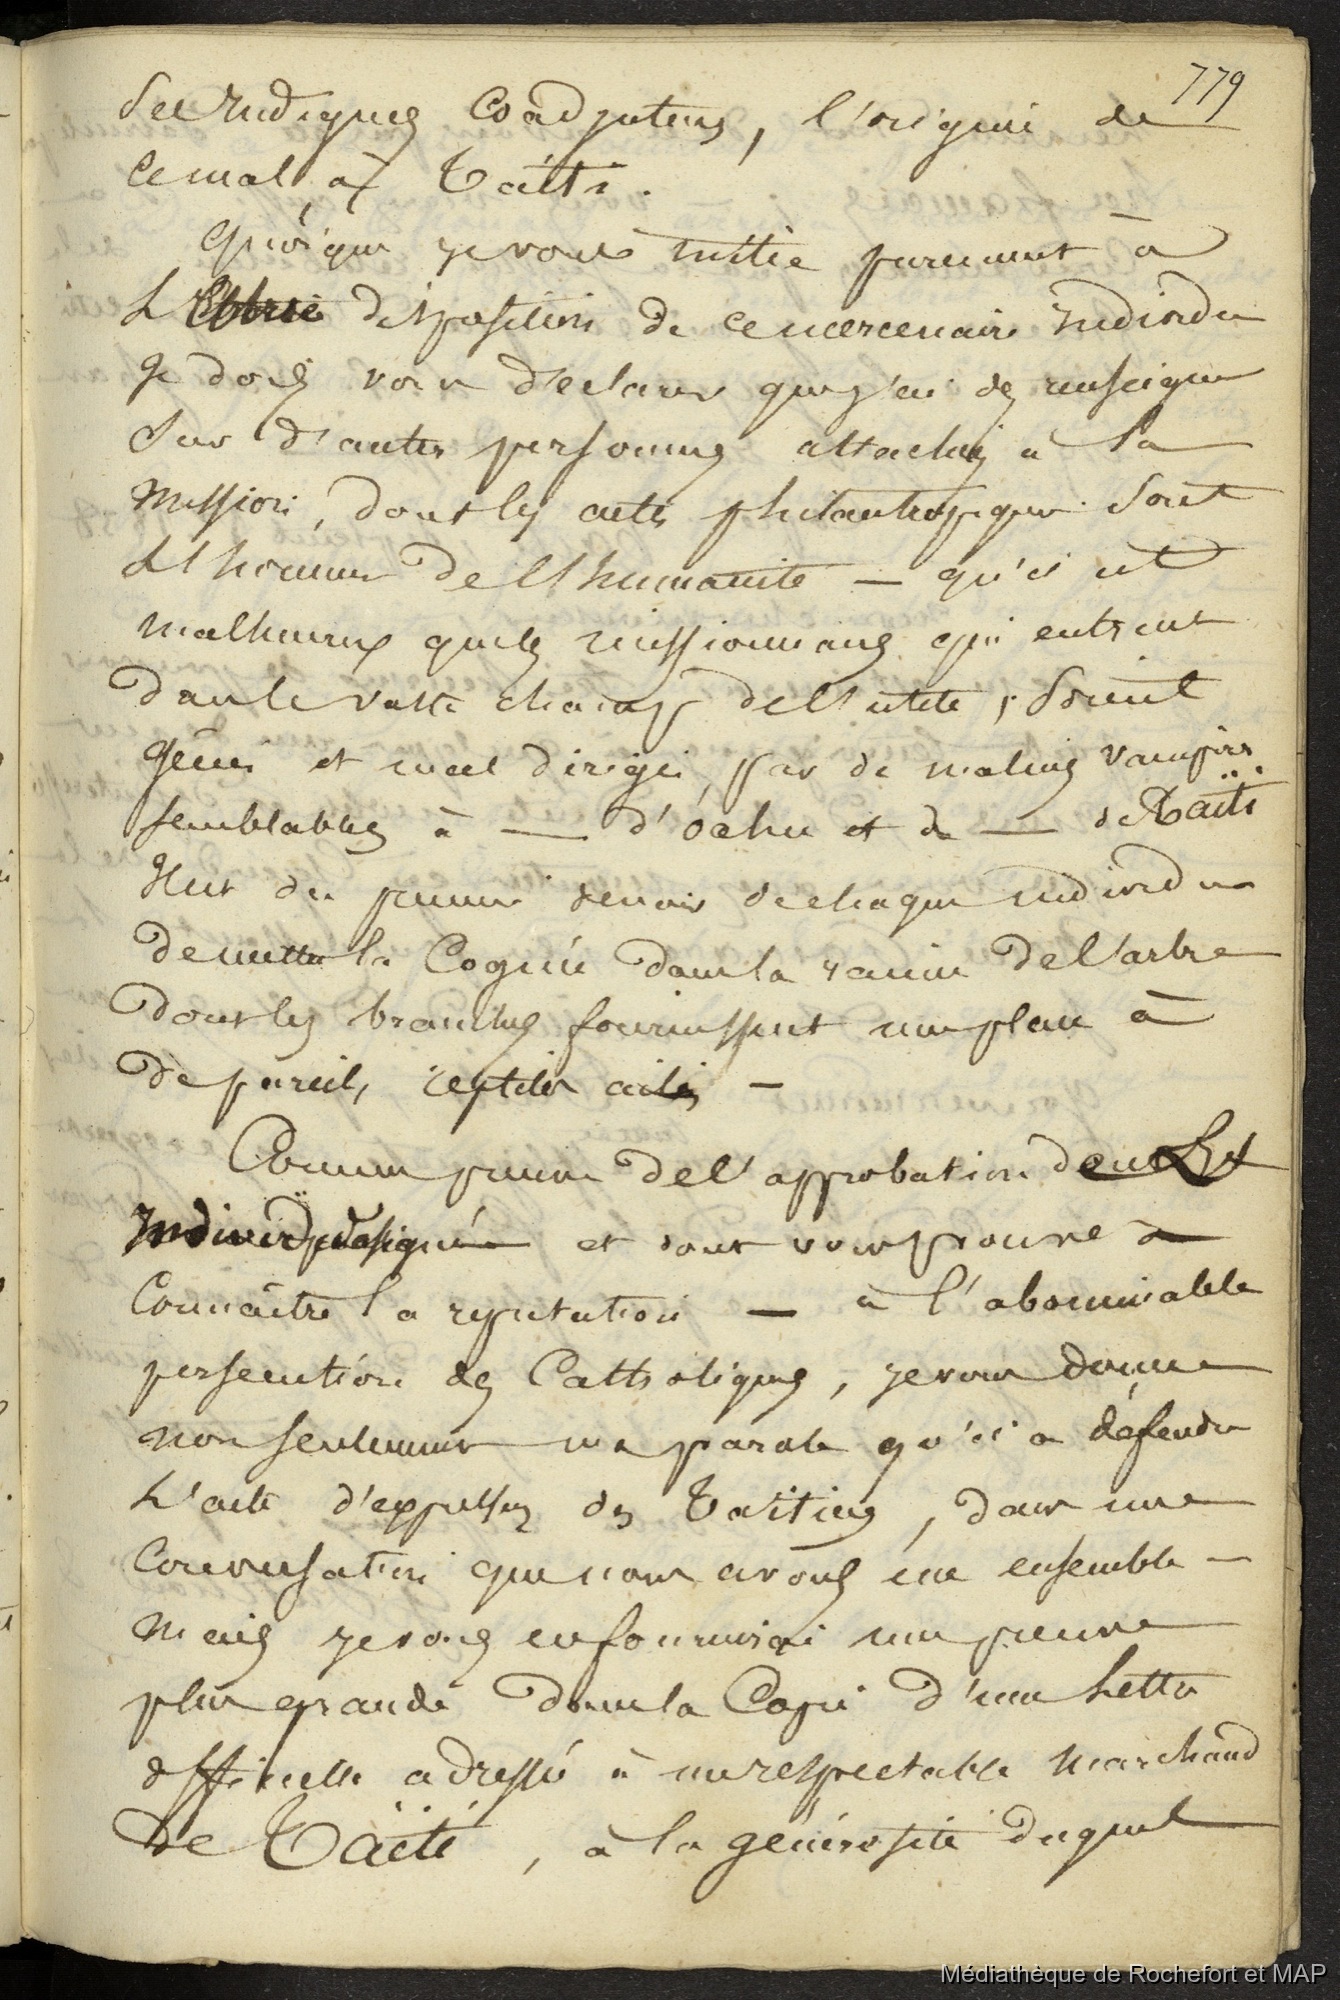 779
ses indignes Coadjuteurs, l'origine de
ce mal, à Taïti.
Quoique je vous initie purement à
L disposition de ce mercenaire individu
Je dois vous déclarer que j'ai des renseigne
Sur d'autres personnes attachés à la
Mission, dont les actes philantropiques sont
L'honneur de l'humanité — qu'il est
malheureux que les missionnaires qui entrent
dans le vaste champ de l'utilité, soient
gênés et mal dirigés, par de malins vampires
semblables à — d'oahu et de — de Taïti
Il est du premier devoir de chaque individu
de mettre la Cognée dans la racine de l'arbre
dont les branches fournissent une place à
de pareils reptiles ailés —
Comme preuve de l'approbation de
individu désigné et dont vous prouve à
Connaître la reputation — à l'abominable
persecution des Catholiques, je vous donne
non seulement ma parole qu'il a défendu
L'acte d'expulser des Taïtiens, dans une
Conversation que nous avons eue ensemble —
Mais je vous en fournirai une preuve
plus grande dans la Copie d'une Lettre
officielle adressée à un respectable Marchand
de Taïti, à la générosité duquel
Médiathèque de Rochefort et MAP